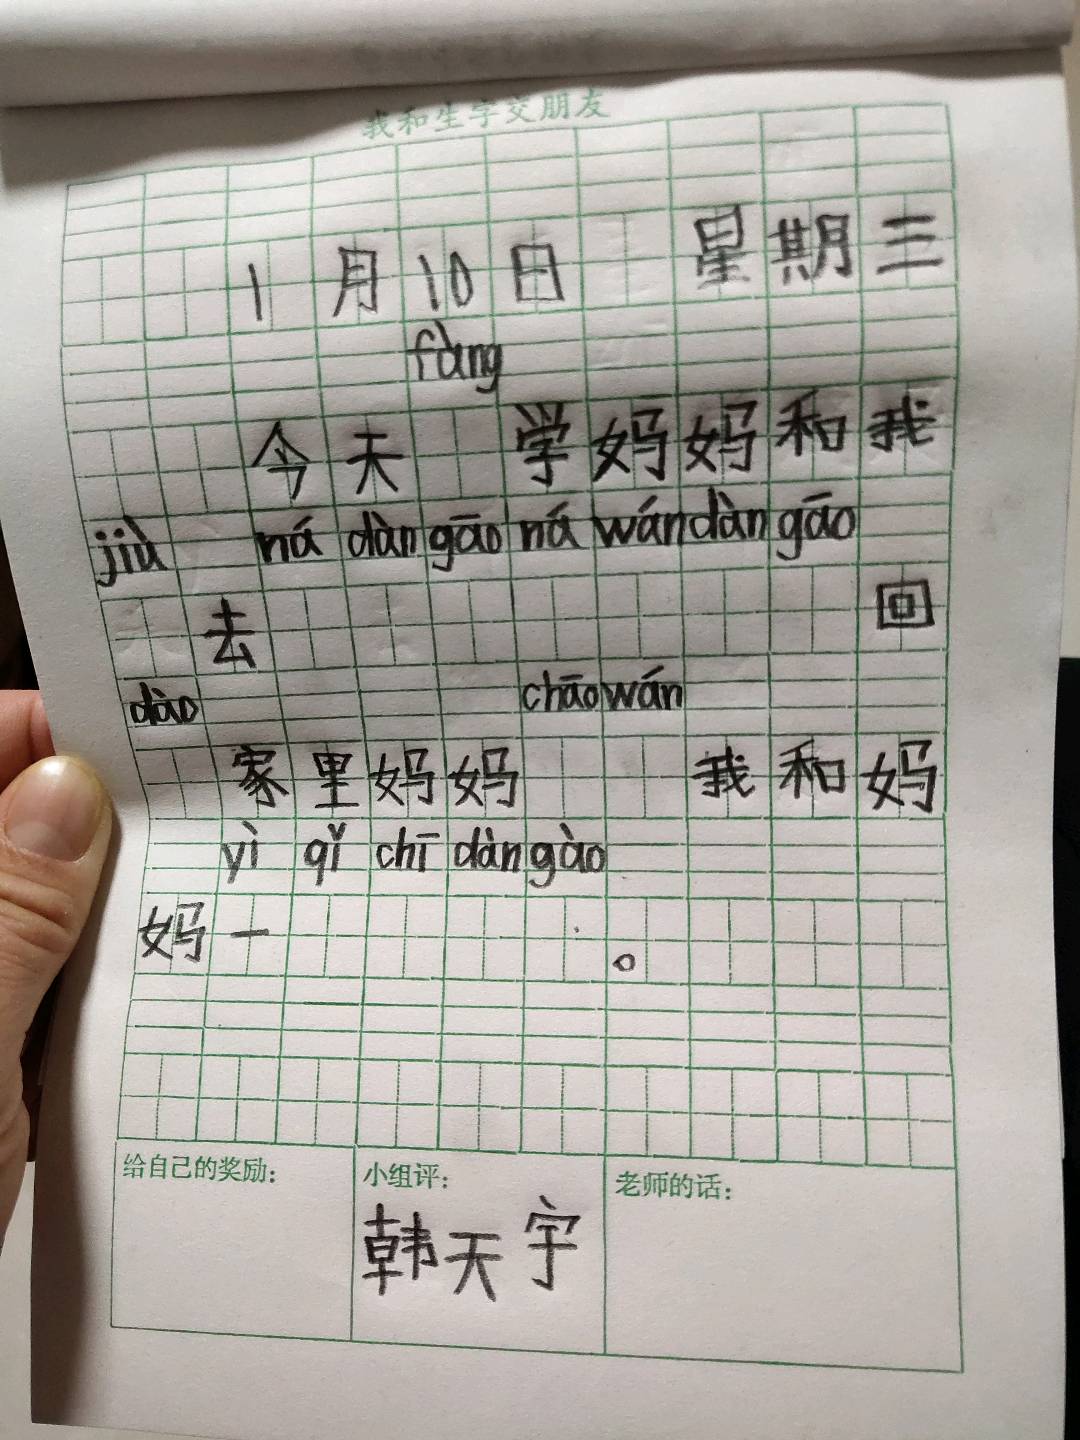 我和生字交朋友
1月10日 星期三
fàng
今天 学妈妈和我
jiù ná dàn gāo ná wán dàn gāo
去 回
dào chāo wán
家里妈妈 我和妈
yì qǐ chī dàn gào
妈一 。
给自己的奖励: 小组评: 老师的话:
韩天宇